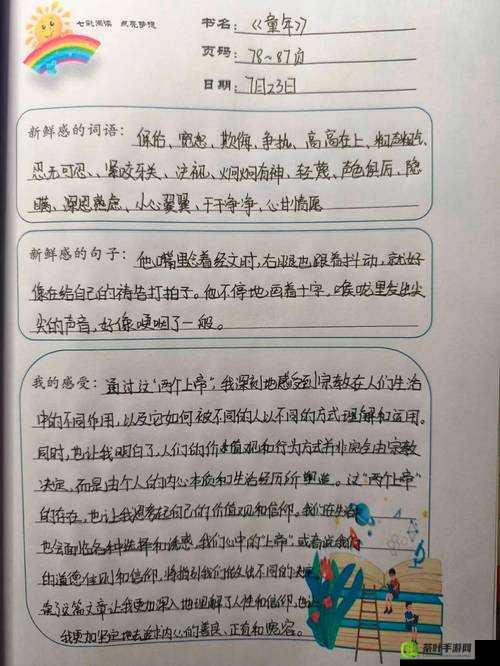 七彩阅读 点亮梦想
书名：《童年》
页码：78~87页
日期：7月23日
新鲜感的词语：保佑、宽恕、欺侮、争执、高高在上、
忍无可忍、紧咬牙关、注视、炯炯有神、轻蔑、声色俱厉、隐
瞒、深思熟虑、小心翼翼、干干净净、心甘情愿
新鲜感的句子：他嘴里念着经文时，右腿也跟着抖动，就好
像在给自己的祷告打拍子。他不停地画着十字，喉咙里发出尖
尖的声音，好像哽咽了一般。
我的感受：通过这"两个上帝"，我深刻地感受到宗教在人们生活
中的不同作用，以及它如何被不同的人以不同的方式理解和运用。
同时，也让我明白了，人们的价值观和行为方式并非完全由宗教
决定，而是由个人的内心本质和生活经历所塑造。这"两个上帝"
的存在，也让我思考起自己的价值观和信仰。我们在生活
也会面临各种选择和诱惑，我们心中的"上帝"，或者说我们
的道德准则和信仰，将指引我们做出不同的决
这篇文章让我更加深入地理解了人性和信仰，也
我更加坚定地去追求内心的善良、正直和宽容。
茶叶手游网